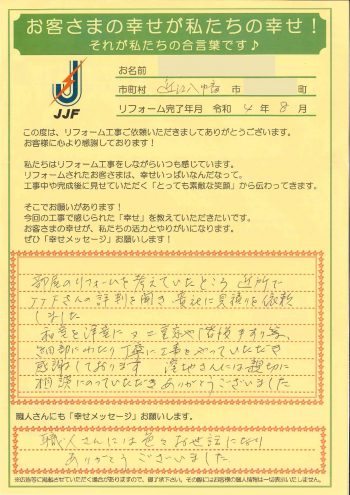 お客さまの幸せが私たちの幸せ！
それが私たちの合言葉です♪
JJF
お名前
市町村 近江八幡 市 町
リフォーム完了年月 令和 4 年 8 月
この度は、リフォーム工事ご依頼いただきましてありがとうございます。
お客様に心より感謝しております！
私たちはリフォーム工事をしながらいつも感じています。
リフォームされたお客さまは、幸せいっぱいなんだなって。
工事中や完成後に見せていただく「とっても素敵な笑顔」から伝わってきます。
そこでお願いがあります！
今回の工事で感じられた「幸せ」を教えていただきたいです。
お客さまの幸せが、私たちの活力とやりがいになります。
ぜひ「幸せメッセージ」お願いします！
部屋のリフォームを考えていたところ 近所で
JJFさんの評判を聞き 貴社に見積りを依頼
しました
和室を洋室に 階段 手すり等、
細部にわたり 丁寧に工事をやっていただき
感謝しております さんには親切に
相談にのっていただき ありがとうございました
職人さんにも「幸せメッセージ」お願いします。
職人さんには色々お世話になり
ありがとうございました
※広告等に掲載させていただく場合がありますので、御了承下さい。その際にはお客様の個人情報は一切表示いたしません。